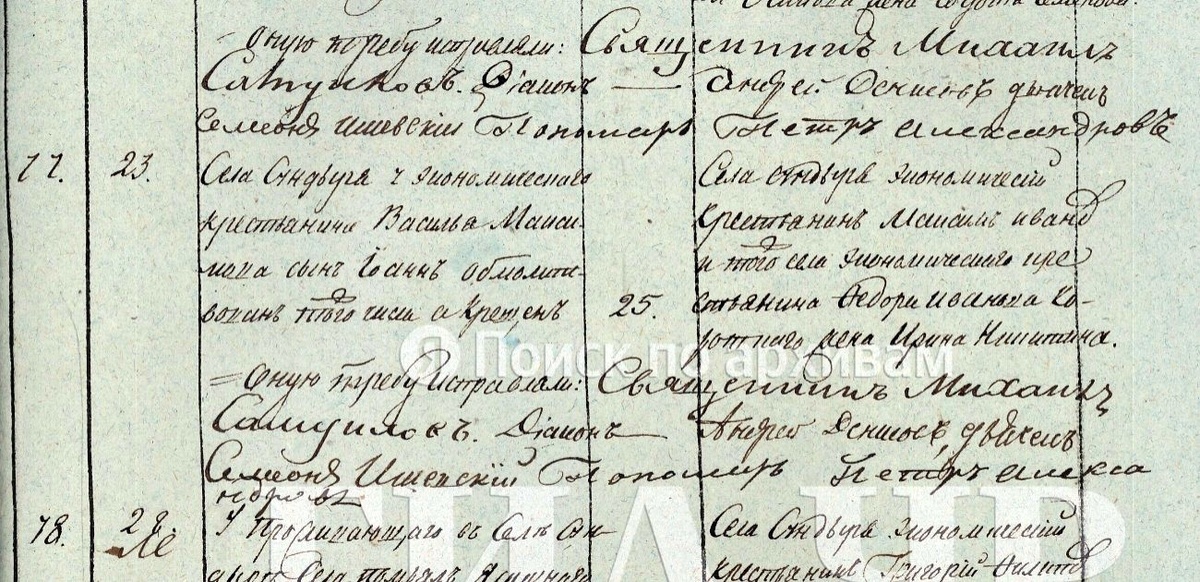 = оную требу исправляли: Священникъ Михаилъ
Самуиловъ. Діаконъ — Андрей Денисовъ дьячекъ
Семеонъ Ишевскіи Пономарь Петръ Александровъ
77. 23.
Села Сундыря у экономическаго
крестьянина Василья Макси-
мова сынъ Іоаннъ обмолити-
вованъ того числа а крещенъ
25.
Села Сундыря экономическій
крестьянинъ Максимъ Иванов
и того села экономическаго кре
стьянина Федора Иванова Ко-
роткаго жена Ирина Никитина.
= оную требу исправляли: Священникъ Михаилъ
Самуиловъ. Діаконъ — Андрей Денисовъ, дьячекъ
Семеонъ Ишевскій Пономарь Петръ Алекса
ндровъ
78. 28.
У Проживающаго въ Селѣ Сун-
Села
Села Сундыря экономическій
крестьянинъ Григорій
Поиск по архивам